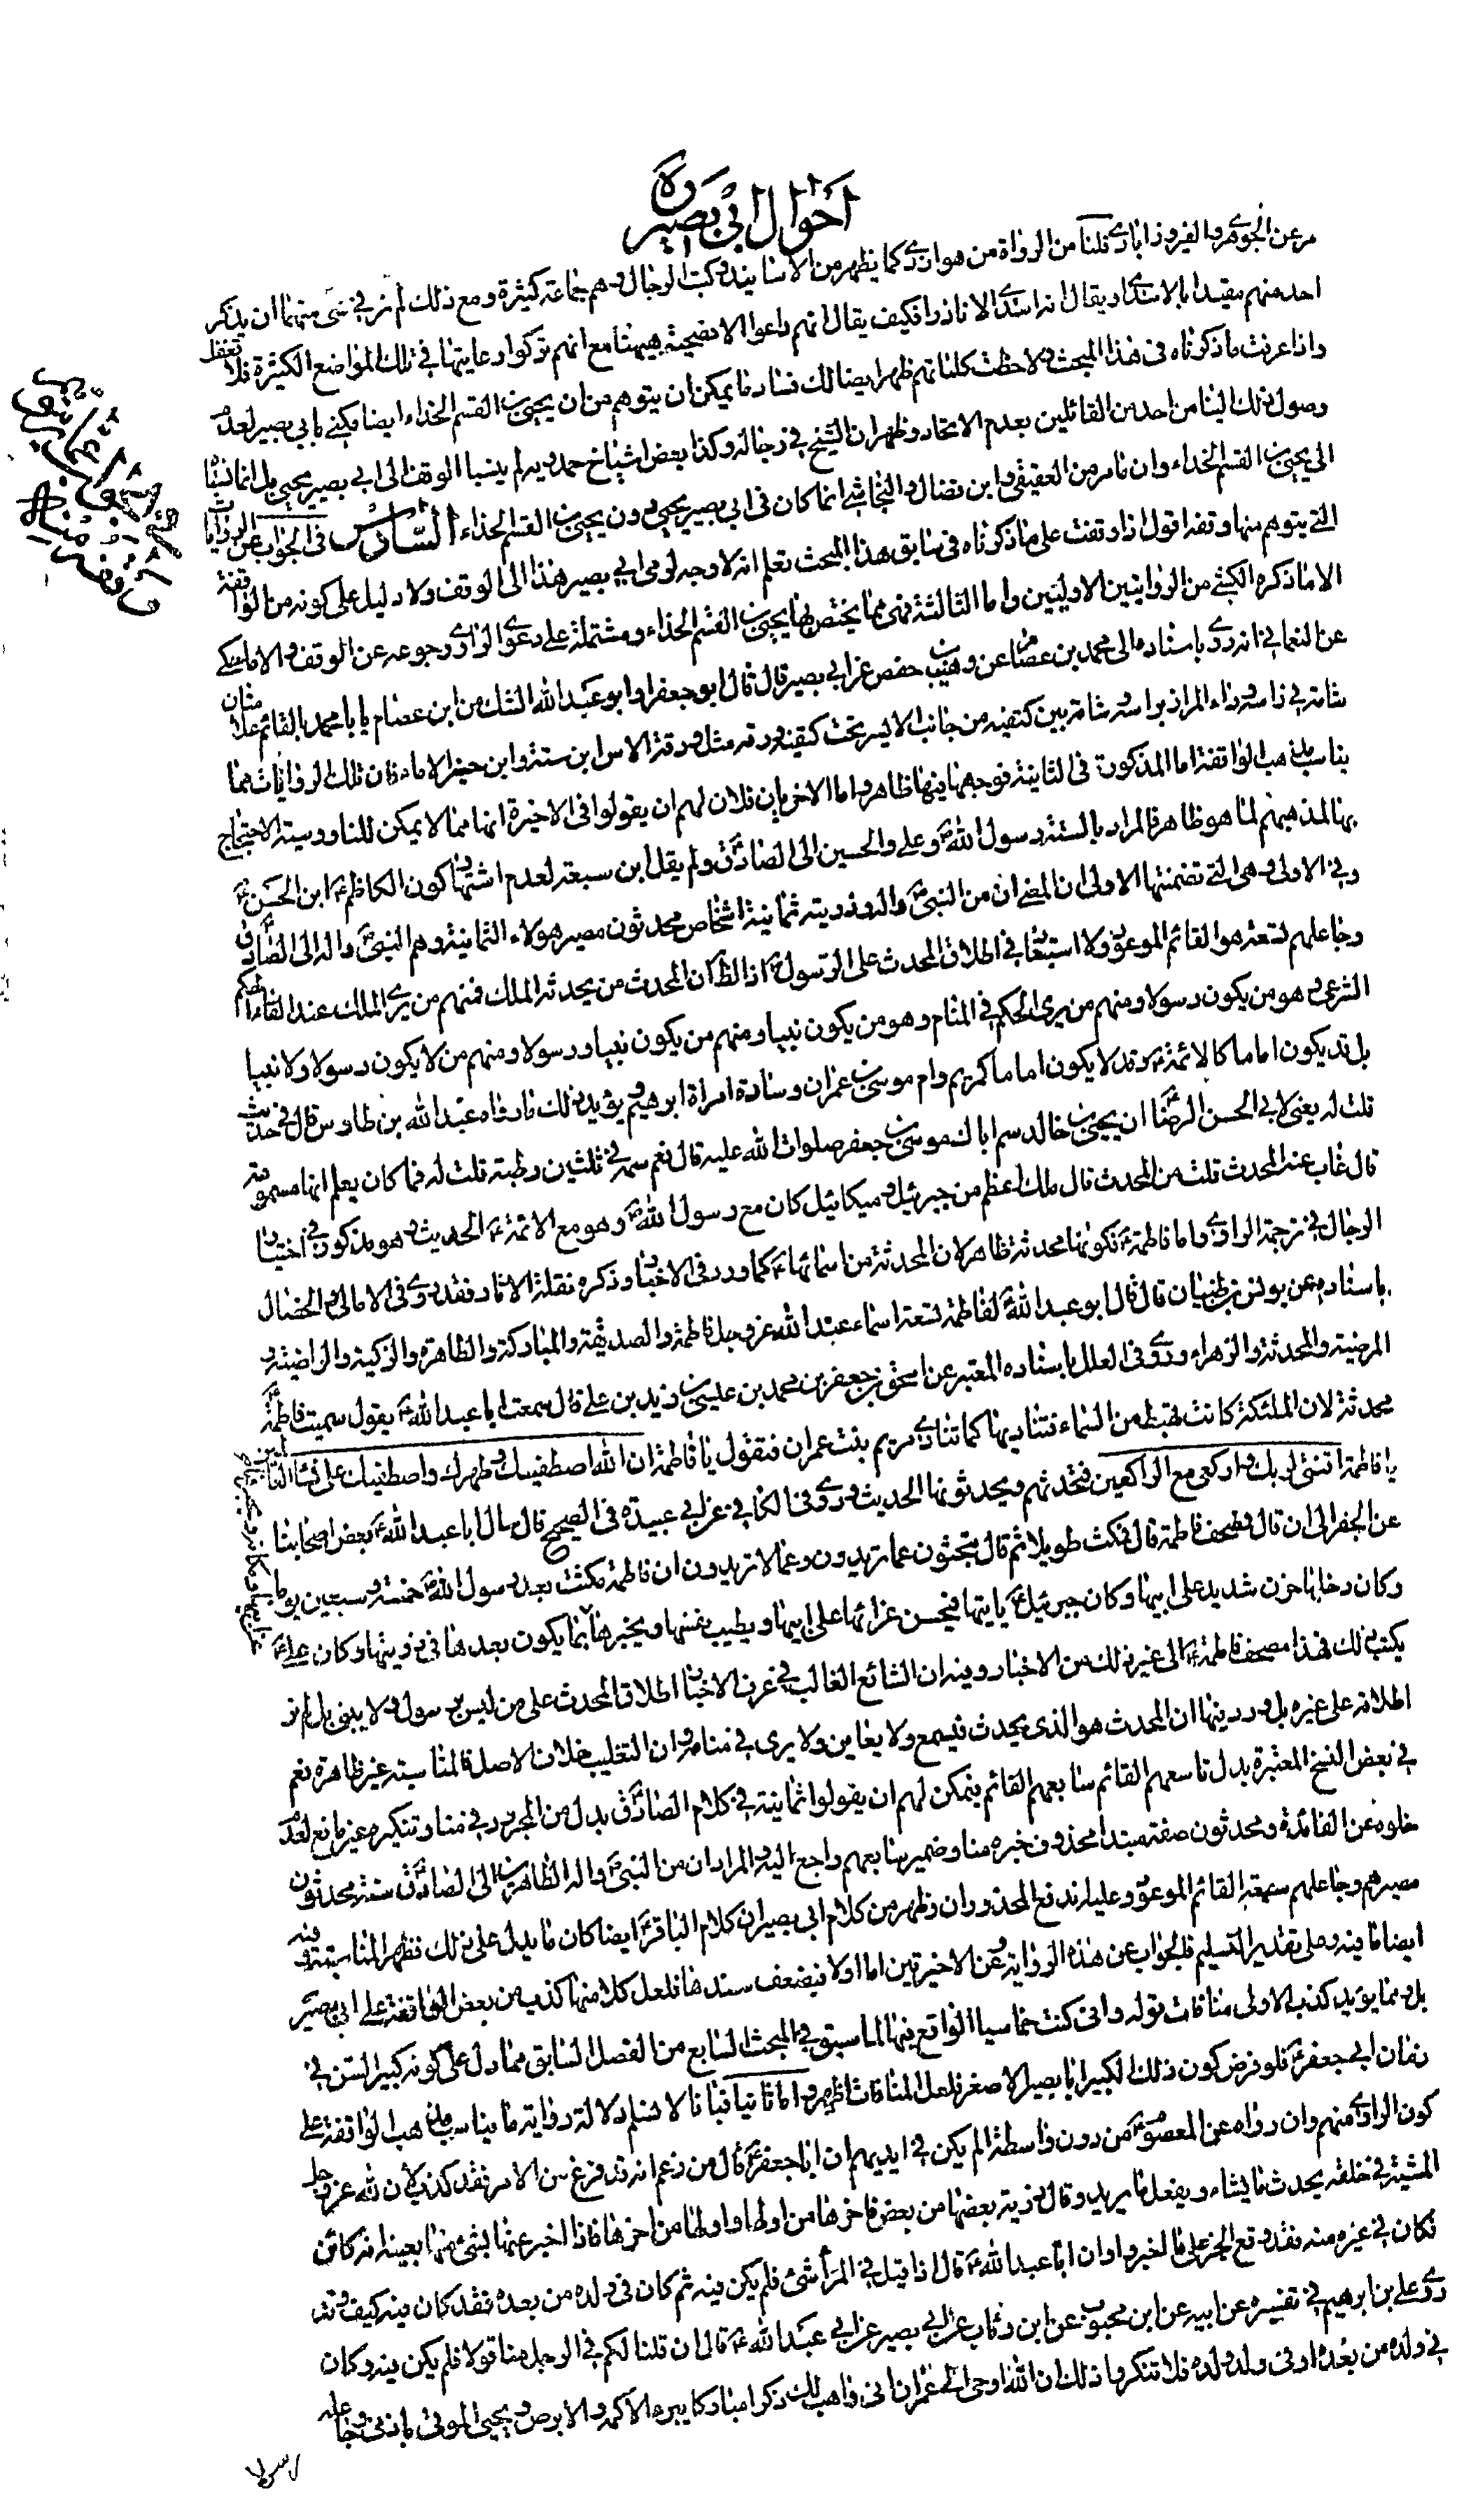 احوال ابي بصير
مر عن الجوهري والفيروزابادي قلنا من الرواة من هو ازدي كما يظهر من الاسانيد وكتب الرجال وهم جماعة كثيرة ومع ذلك لم نر في شئ منهما ان يذكر
احد منهم مقيدا بالاسدي او يقال انه اسدي الا نادرا فكيف يقال انهم راعوا الافصحية هيهنا مع انهم تركوا رعايتها في تلك المواضع الكثيرة فلا تغفل
واذا عرفت ما ذكرناه في هذا المبحث ولاحظت كلماتهم ظهر ايضا لك فساد ما يمكن ان يتوهم من ان يحيى بن القسم الحذاء ايضا يكنى بابي بصير لعدم
وصول ذلك الينا من احد من القائلين بعدم الاتحاد وظهر ان الشيخ في رجاله وكذا بعض اشياخ حمدويه لم ينسبا الوقف الى ابي بصير يحيى بل انما نسباه
الى يحيى بن القسم الحذاء وان ما مر من العقيقي وابن فضال والنجاشي انما كان في ابي بصير يحيى دون يحيى بن القسم الحذاء السادس في الجواب عن الروايات
التي يتوهم منها وقفه اقول اذا وقفت على ما ذكرناه في سابق هذا المبحث تعلم انه لا وجه لرمي ابي بصير هذا الى الوقف ولا دليل على كونه من الواقفة
الا ما ذكره الكشي من الروايتين الاوليين واما الثالثة فهي مما يختص بها يحيى بن القسم الحذاء ومشتملة على دعوى الراوي رجوعه عن الوقف والا ما حكي
عن النعماني انه روى باسناده الى محمد بن عصام عن وهيب بن حفص عن ابي بصير قال قال ابو جعفر او ابو عبد الله الشك من ابن عصام يا با محمد بالقائم علامتان
شامة في راسه وداء الحزاز براسه وشامة بين كتفيه من جانب الايسر تحت كتفيه ورقة مثل ورقة الاس ابن ستة وابن خيرة الاماء فان تلك الروايات مما
يناسب مذهب الواقفة اما المذكورة في الثانية فوجهها فيها ظاهر واما الاخريان فلان لهم ان يقولوا في الاخيرة انها مما لا يمكن للناووسية الاحتجاج
بها لمذهبهم لما هو ظاهر فالمراد بالستة رسول الله وعلي والحسين الى الصادق ولم يقل ابن سبعة لعدم اشتهار كون الكاظم ابن الحسن
وفي الاولى وهي التي تضمنتها الاولى ان المعنى ان من النبي واله وذويته ثمانية اشخاص محدثون مصير هؤلاء الثمانية وهم النبي واله الى الصادق
وجاعلهم تسعة هو القائم الموعود ولا استبعاد في اطلاق المحدث على الرسول اذ الظ ان المحدث من يحدثه الملك فمنهم من يرى الملك عند القاء الحكم
الشرعي وهو من يكون رسولا ومنهم من يرى الحكم في المنام وهو من يكون نبيا ومنهم من يكون نبيا ورسولا ومنهم من لا يكون رسولا ولا نبيا
بل قد يكون اماما كالائمة وقد لا يكون اماما كمريم وام موسى بن عمران وسارة امراة ابرهيم ويؤيد ذلك ما رواه عبد الله بن طاوس قال في حديث
قلت له يعني لابي الحسن الرضا ان يحيى بن خالد سم اباك موسى بن جعفر صلوات الله عليه قال نعم سمه في ثلثين رطبة قلت له فما كان يعلم انها مسمومة
قال غاب عنه المحدث قلت من المحدث قال ملك اعظم من جبرئيل وميكائيل كان مع رسول الله وهو مع الائمة الحديث وهو مذكور في اختيار
الرجال في ترجمة الراوي واما فاطمة فكونها محدثة ظاهر لان المحدثة من اسمائها كما ورد في الاخبار وذكره نقلة الاثار فقد روى في الامالي والخصال
باسناده عن يونس بن ظبيان قال قال ابو عبد الله لفاطمة تسعة اسماء عند الله عز وجل فاطمة والصديقة والمباركة والطاهرة والزكية والراضية و
المرضية والمحدثة والزهراء وروى في العلل باسناده المعتبر عن اسحق بن جعفر بن محمد بن عيسى بن زيد بن علي قال سمعت ابا عبد الله يقول سميت فاطمة
محدثة لان الملئكة كانت تهبط من السماء فتناديها كما تنادي مريم بنت عمران فتقول يا فاطمة ان الله اصطفيك وطهرك واصطفيك على نساء العالمين
يا فاطمة اقنتي لربك واركعي مع الراكعين فتحدثهم ويحدثونها الحديث وروى في الكافي عن ابي عبيدة في الصحيح قال سال ابا عبد الله بعض اصحابنا
عن الجفر الى ان قال فمصحف فاطمة قال فسكت طويلا ثم قال تبحثون عما تريدون وعما لا تريدون ان فاطمة مكثت بعد رسول الله خمسة وسبعين يوما
وكان دخلها حزن شديد على ابيها وكان جبرئيل ياتيها فيحسن عزائها على ابيها ويطيب نفسها ويخبرها بما يكون بعدها في ذريتها وكان علي
يكتب ذلك فهذا مصحف فاطمة الى غير ذلك من الاخبار وفيه ان الشائع الغالب في عرف الاخبار اطلاق المحدث على من ليس برسول ولا بنبي بل لم نر
اطلاقه على غيره بل ورد فيها ان المحدث هو الذي يحدث فيسمع ولا يعاين ولا يرى في منامه وان التغليب خلاف الاصل فالمناسبة غير ظاهرة نعم
في بعض النسخ المعتبرة بدل تاسعهم القائم سابعهم القائم فيمكن لهم ان يقولوا ثمانية في كلام الصادق بدل من المجرور في منا وتنكيره غير مانع لعدم
خلوه عن الفائدة ومحدثون صفته مبتدأ محذوف خبره منا وضمير سابعهم راجع اليه والمراد ان من النبي واله الطاهرين الى الصادق ستة محدثون
مصيرهم وجاعلهم سبعة القائم الموعود وعليه اندفع المحذور وان وظهر من كلام ابي بصير ان كلام الباقر ايضا كان ما يدل على ذلك فظهر المناسبة وفيه
ايضا ما فيه وعلى تقدير التسليم فالجواب عن هذه الرواية وعن الاخيرتين اما اولا فبضعف سندها فلعل كلا منها كذب من بعض الواقفة على ابي بصير
بل ومما يؤيد كذب الاولى منافات قوله واني كنت خماسيا الواقع فيها لما سبق في المبحث السابع من الفصل السابق مما دل على كونه كبير السن في
زمان ابي جعفر فلو فرض كون ذلك الكبير ابا بصير الاصغر فلعل المنافات اظهر واما ثانيا فبانا لا نسلم دلالة رواية ما يناسب مذهب الواقفة على
كون الراوي منهم وان رواه عن المعصوم من دون واسطة الم يكن في ايديهم ان ابا جعفر قال من زعم انه قد فرغ من الامر فقد كذب لان لله عز وجل
المشية في خلقه يحدث ما يشاء ويفعل ما يريد وقال ذرية بعضها من بعض فاخرها من اولها واولها من اخرها فاذا اخبر عنها بشئ منها بعينه انه كائن
فكان في غيره منه فقد وقع الخبر على ما اخبروا وان ابا عبد الله قال اذا قيل في المرء شئ فلم يكن فيه ثم كان في ولده من بعده فقد كان فيه كيف وقد
روى علي بن ابرهيم في تفسيره عن ابيه عن ابن محبوب عن ابن رئاب عن ابي بصير عن ابي عبد الله قال ان قلنا لكم في الرجل منا قولا فلم يكن فيه وكان
في ولده من بعده او في ولد ولده فلا تنكروا ذلك ان الله اوحى الى عمران اني واهب لك ذكرا مباركا يبرء الاكمه والابرص ويحيي الموتى باذني وجاعله
رسولا